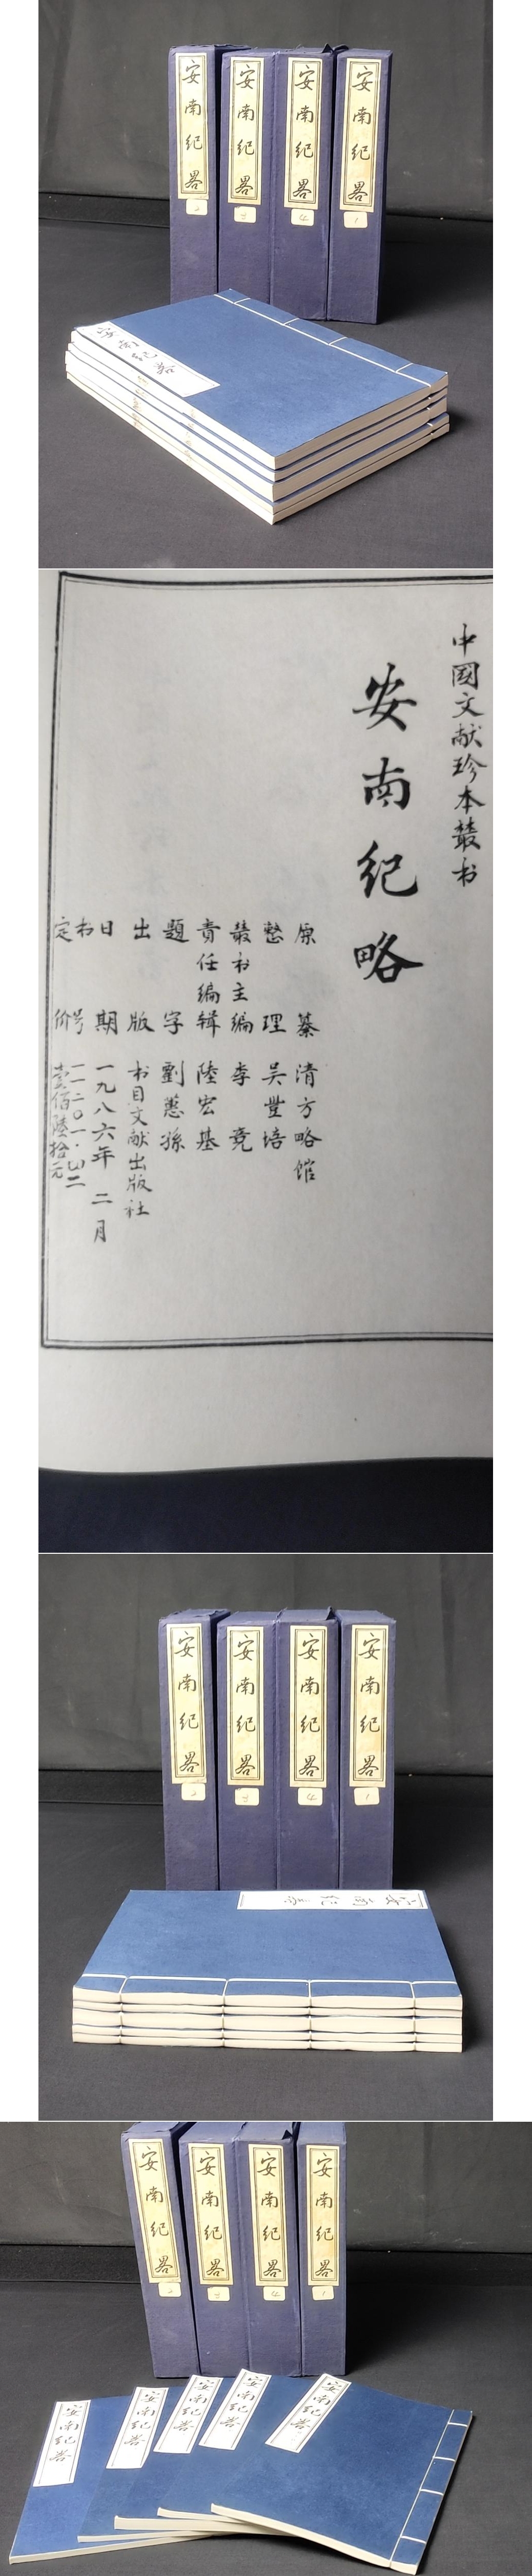 安南纪畧
安南纪畧
安南纪畧
安南纪畧
4
1
安南纪畧
中國文献珍本叢书
安南纪略
原纂 清方略馆
整理 吴豐培
叢书主编 李竞
責任编辑 陸宏基
題字 劉蕙孫
出版 书目文献出版社
日期 一九八六年二月
书号 一一二〇一·四二
定价 壹佰陸拾元
安南纪畧
安南纪畧
安南纪畧
安南纪畧
4
1
安南纪畧
安南纪畧
安南纪畧
安南纪畧
安南纪畧
4
1
安南纪畧
安南纪畧
安南纪畧
安南纪畧
安南纪畧